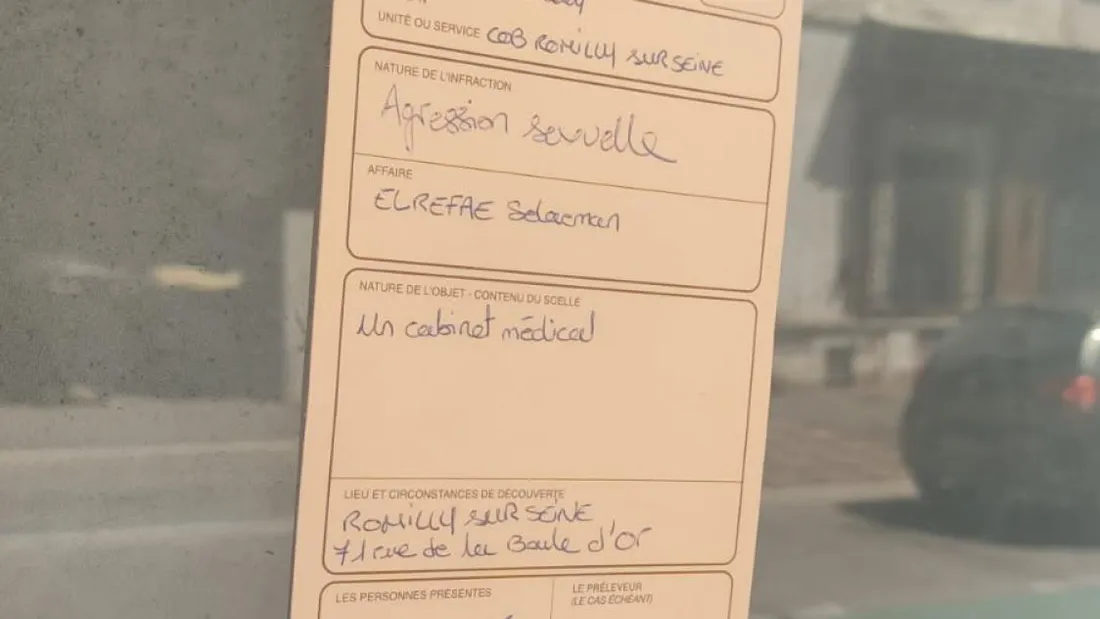 UNITÉ OU SERVICE COB ROMILLY SUR SEINE
NATURE DE L'INFRACTION
Agression sexuelle
AFFAIRE
ELREFAE Selaeman
NATURE DE L'OBJET - CONTENU DU SCELLÉ
Un cabinet médical
LIEU ET CIRCONSTANCES DE DÉCOUVERTE
ROMILLY SUR SEINE
71 rue de la Boule d'Or
LES PERSONNES PRÉSENTES
LE PRÉLEVEUR
(LE CAS ÉCHÉANT)